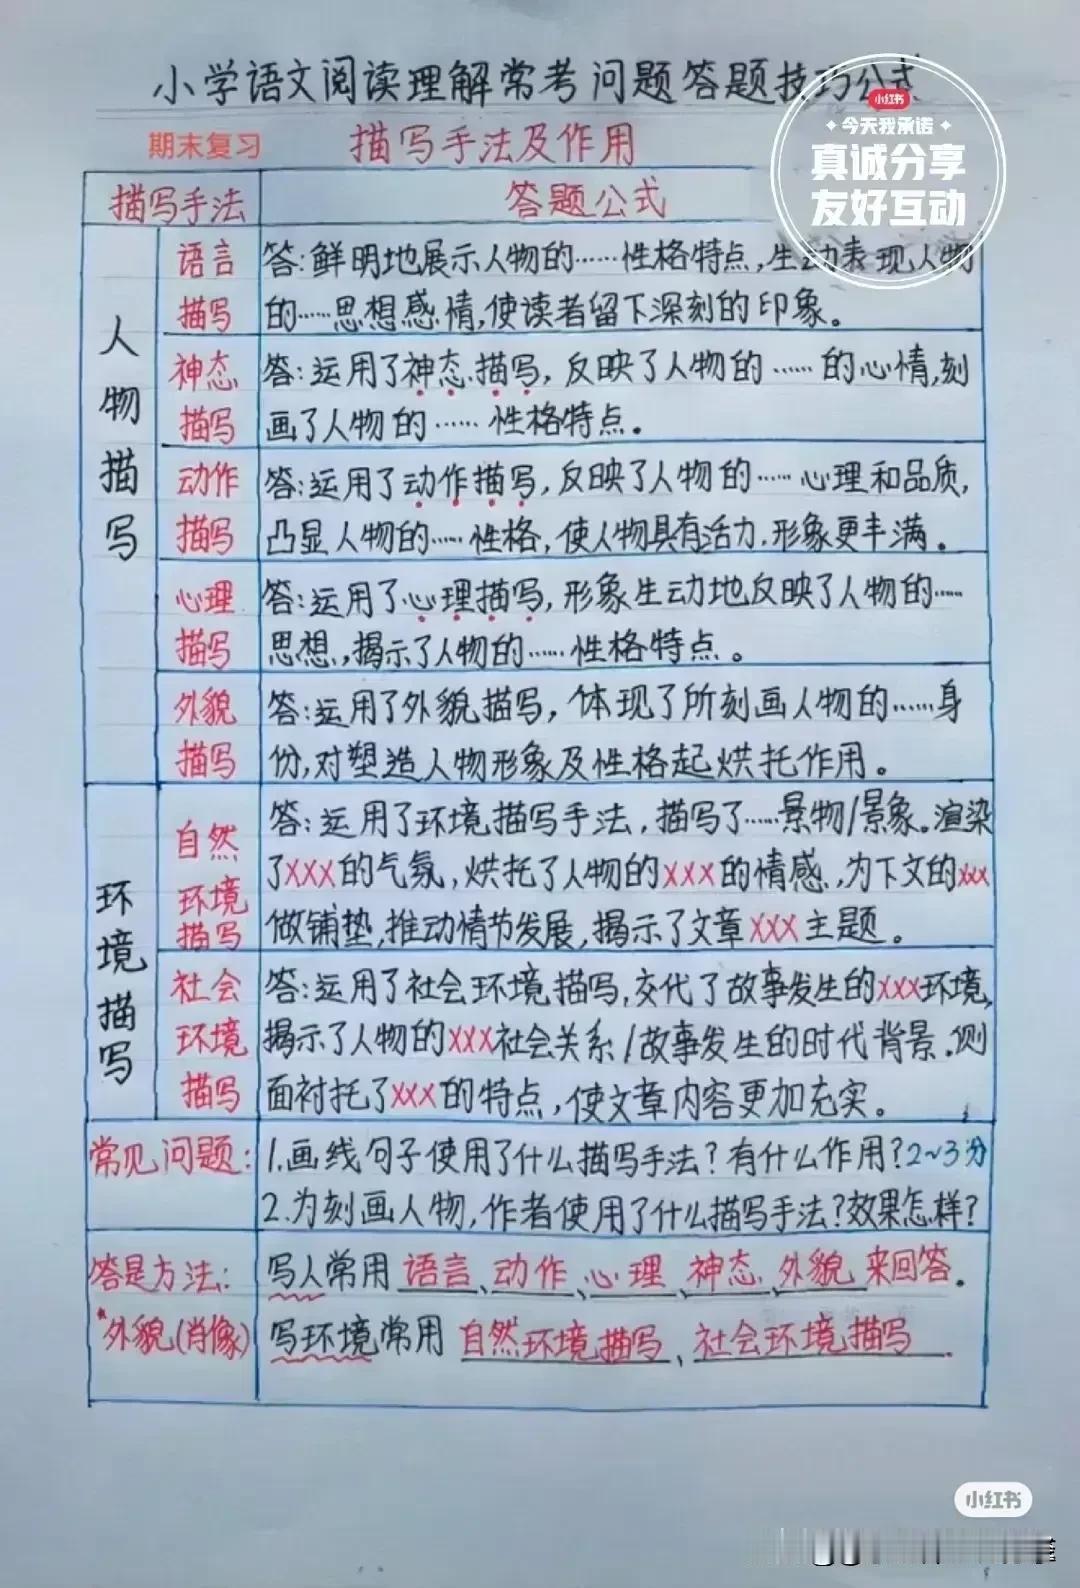 小学语文阅读理解常考问题答题技巧公式
小红书
今天我承诺
真诚分享
友好互动
期末复习
描写手法及作用
描写手法
答题公式
人物描写
语言
描写
答:鲜明地展示人物的……性格特点,生动表现人物
的……思想感情,使读者留下深刻的印象。
神态
描写
答:运用了神态描写,反映了人物的……的心情,刻
画了人物的……性格特点。
动作
描写
答:运用了动作描写,反映了人物的……心理和品质,
凸显人物的……性格,使人物具有活力,形象更丰满。
心理
描写
答:运用了心理描写,形象生动地反映了人物的……
思想,揭示了人物的……性格特点。
外貌
描写
答:运用了外貌描写,体现了所刻画人物的……身
份,对塑造人物形象及性格起烘托作用。
环境描写
自然
环境
描写
答:运用了环境描写手法,描写了……景物/景象。渲染
了XXX的气氛,烘托了人物的XXX的情感,为下文的xxx
做铺垫,推动情节发展,揭示了文章XXX主题。
社会
环境
描写
答:运用了社会环境描写,交代了故事发生的xxx环境,
揭示了人物的xxx社会关系/故事发生的时代背景.侧
面衬托了xxx的特点,使文章内容更加充实。
常见问题:
1.画线句子使用了什么描写手法?有什么作用?2~3分
2.为刻画人物,作者使用了什么描写手法?效果怎样?
答是方法:
*外貌(肖像)
写人常用语言、动作、心理、神态、外貌来回答.
写环境常用自然环境描写、社会环境描写.
小红书